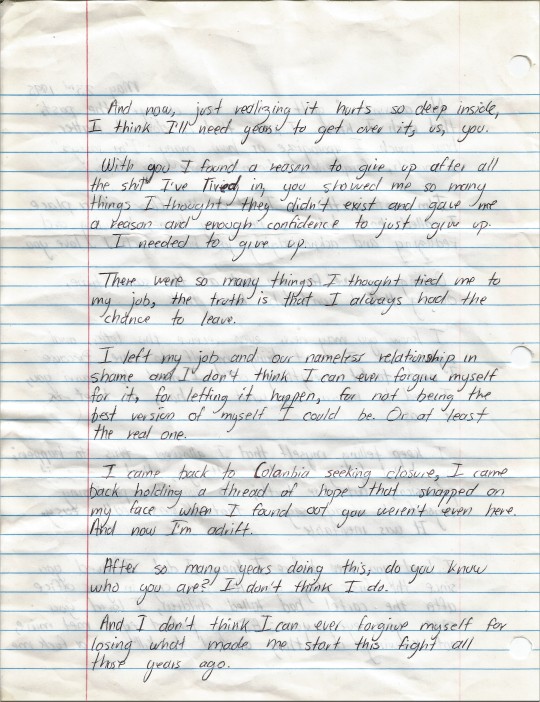 And now, just realizing it hurts so deep inside,
I think I'll need years to get over it, us, you.
With you I found a reason to give up after all
the shit I've lived in, you showed me so many
things I thought they didn't exist and gave me
a reason and enough confidence to just give up.
I needed to give up.
There were so many things I thought tied me to
my job, the truth is that I always had the
chance to leave.
I left my job and our nameless relationship in
shame and I don't think I can ever forgive myself
for it, for letting it happen, for not being the
best version of myself I could be. Or at least
the real one.
I came back to Colanbia seeking closure, I came
back holding a thread of hope that snapped on
my face when I found out you weren't even here.
And now I'm adrift.
After so many years doing this, do you know
who you are? I don't think I do.
And I don't think I can ever forgive myself for
losing what made me start this fight all
those years ago.